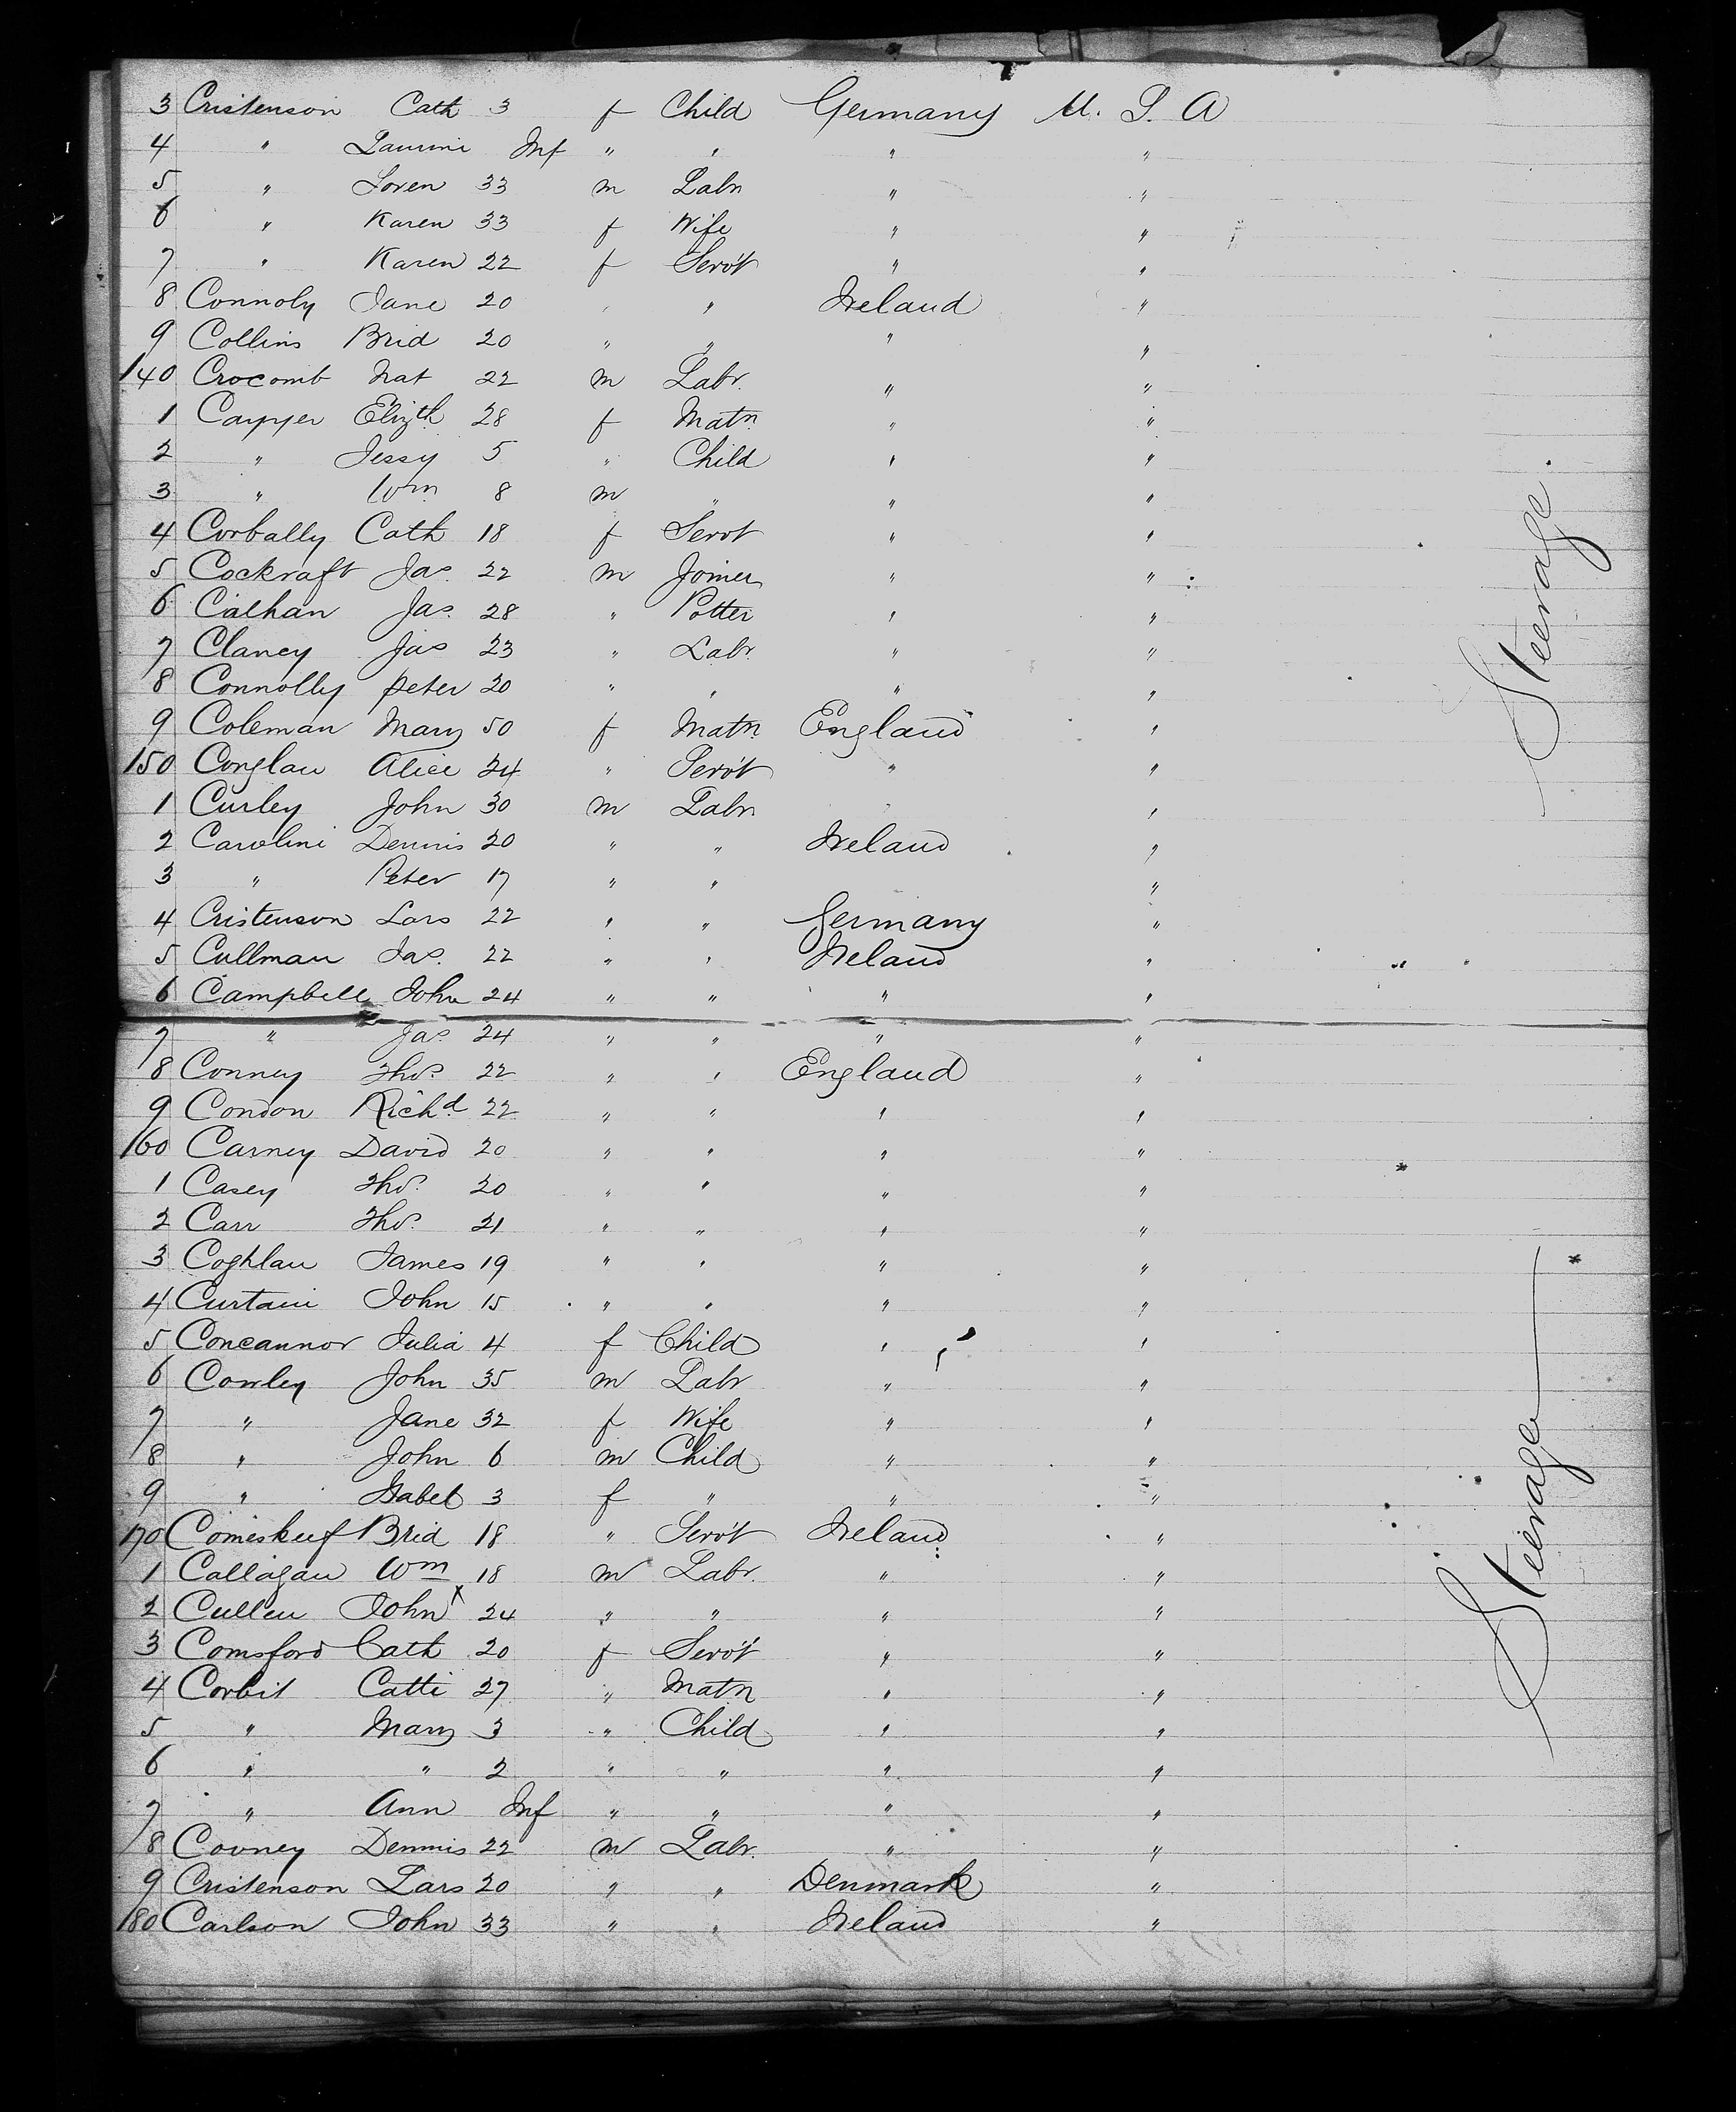 3 Cristenson Cath 3 f Child Germany U. S. A
4 " Laurine Inf " " " "
5 " Soren 33 m Labr " "
6 " Karen 33 f Wife " "
7 " Karen 22 f Servt " "
8 Connoly Jane 20 " " Ireland "
9 Collins Brid 20 " " " "
140 Crocomb Nat 22 m Labr. " "
1 Capper Elizth 28 f Matn " "
2 " Jessy 5 " Child " "
3 " Wm 8 m " " "
4 Corbally Cath 18 f Servt " "
5 Cockraft Jas. 22 m Joiner " "
6 Calhan Jas. 28 " Potter " "
7 Clancy Jas 23 " Labr. " "
8 Connolly Peter 20 " " " "
9 Coleman Mary 50 f Matn England "
150 Conglan Alice 24 " Servt " "
1 Curley John 30 m Labr " "
2 Caroline Dennis 20 " " Ireland "
3 " Peter 17 " " "
4 Cristenson Lars 22 " " Germany "
5 Cullman Jas. 22 " " Ireland "
6 Campbell John 24 " " " "
7 " Jas. 24 " " " "
8 Conney Thos. 22 " " England "
9 Condon Richd 22 " " " "
160 Carney David 20 " " " "
1 Casey Thos. 20 " " " "
2 Carr Thos. 21 " " " "
3 Coghlan James 19 " " " "
4 Curtain John 15 " " " "
5 Concannor Julia 4 f Child " "
6 Cowley John 35 m Labr " "
7 " Jane 32 f Wife " "
8 " John 6 m Child " "
9 " Isabel 3 f " " "
170 Brid 18 " Servt Ireland "
1 Callagan Wm 18 m Labr. " "
2 Cullen John x 24 " " " "
3 Comsford Cath 20 f Servt " "
4 Corbit Catti 27 " Matn " "
5 " Mary 3 " Child " "
6 " " 2 " " " "
7 " Ann Inf " " " "
8 Covney Dennis 22 m Labr. " "
9 Cristenson Lars 20 " " Denmark "
180 Carlson John 33 " " Ireland "
Steerage.
Steerage